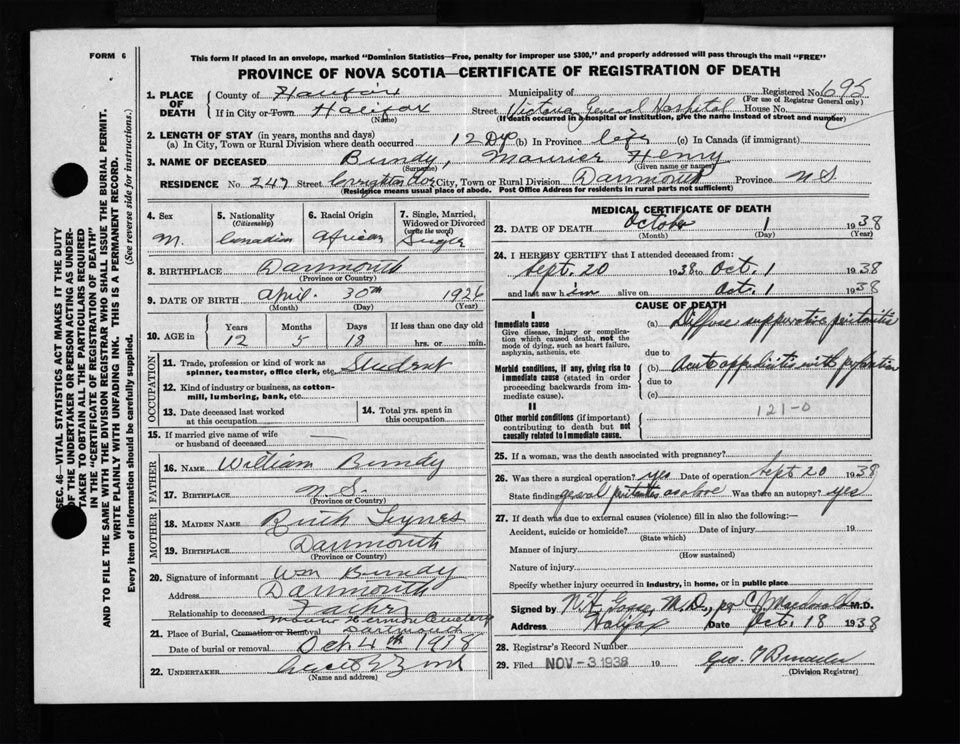 FORM 6
This form if placed in an envelope, marked "Dominion Statistics—Free, penalty for improper use $300," and properly addressed will pass through the mail "FREE"
PROVINCE OF NOVA SCOTIA—CERTIFICATE OF REGISTRATION OF DEATH
SEC. 46—VITAL STATISTICS ACT MAKES IT THE DUTY
OF THE UNDERTAKER OR PERSON ACTING AS UNDER-
TAKER TO OBTAIN ALL THE PARTICULARS REQUIRED
IN THE "CERTIFICATE OF REGISTRATION OF DEATH"
AND TO FILE THE SAME WITH THE DIVISION REGISTRAR WHO SHALL ISSUE THE BURIAL PERMIT.
WRITE PLAINLY WITH UNFADING INK. THIS IS A PERMANENT RECORD.
Every item of information should be carefully supplied. (See reverse side for instructions.)
1. PLACE OF DEATH County of Halifax Municipality of Registered No. 695
(For use of Registrar General only)
If in City or Town Halifax Street Victoria General Hospital House No.
(Name) (If death occurred in a hospital or institution, give the name instead of street and number)
2. LENGTH OF STAY (in years, months and days)
(a) In City, Town or Rural Division where death occurred 12 Dys (b) In Province life (c) In Canada (if immigrant)
3. NAME OF DECEASED Bundy, Maurice Henry
(Surname) (Given name or names)
RESIDENCE No. 247 Street City, Town or Rural Division Darmouth Province N.S.
(Residence means usual place of abode. Post Office Address for residents in rural parts not sufficient)
4. Sex 5. Nationality (Citizenship) 6. Racial Origin 7. Single, Married, Widowed or Divorced (write the word)
M. Canadian African Single
8. BIRTHPLACE Darmouth
(Province or Country)
9. DATE OF BIRTH April 30th 1926
(Month) (Day) (Year)
10. AGE in Years Months Days If less than one day old
12 5 18 hrs. or min.
OCCUPATION
11. Trade, profession or kind of work as spinner, teamster, office clerk, etc. Student
12. Kind of industry or business, as cotton-mill, lumbering, bank, etc.
13. Date deceased last worked at this occupation 14. Total yrs. spent in this occupation
15. If married give name of wife or husband of deceased —
FATHER
16. NAME William Bundy
17. BIRTHPLACE N.S.
(Province or Country)
MOTHER
18. MAIDEN NAME Ruth Tynes
19. BIRTHPLACE Darmouth
(Province or Country)
20. Signature of informant Wm Bundy
Address Darmouth
Relationship to deceased Father
21. Place of Burial, Cremation or Removal Mount Hermon Cemetery Dartmouth
Date of burial or removal Oct 4th 1938
22. UNDERTAKER
(Name and address)
MEDICAL CERTIFICATE OF DEATH
23. DATE OF DEATH October 1 1938
(Month) (Day) (Year)
24. I HEREBY CERTIFY that I attended deceased from:
Sept. 20 1938 to Oct. 1 1938
and last saw him alive on Oct. 1 1938
CAUSE OF DEATH
I
Immediate cause
Give disease, injury or complication which caused death, not the mode of dying, such as heart failure, asphyxia, asthenia, etc
(a) Diffuse suppurative peritonitis
due to
Morbid conditions, if any, giving rise to immediate cause (stated in order proceeding backwards from immediate cause).
(b) Acute appendicitis with perforation
due to
(c)
II
Other morbid conditions (if important) contributing to death but not causally related to immediate cause.
121-0
25. If a woman, was the death associated with pregnancy?
26. Was there a surgical operation? yes Date of operation Sept 20 1938
State finding general peritonitis as above Was there an autopsy? yes
27. If death was due to external causes (violence) fill in also the following:—
Accident, suicide or homicide? Date of injury 19
(State which)
Manner of injury
(How sustained)
Nature of injury
Specify whether injury occurred in industry, in home, or in public place
Signed by N.H. Gosse, M.D., per M.D.
Address Halifax Date Oct. 18 1938
28. Registrar's Record Number
29. Filed NOV - 3 1938 19
(Division Registrar)